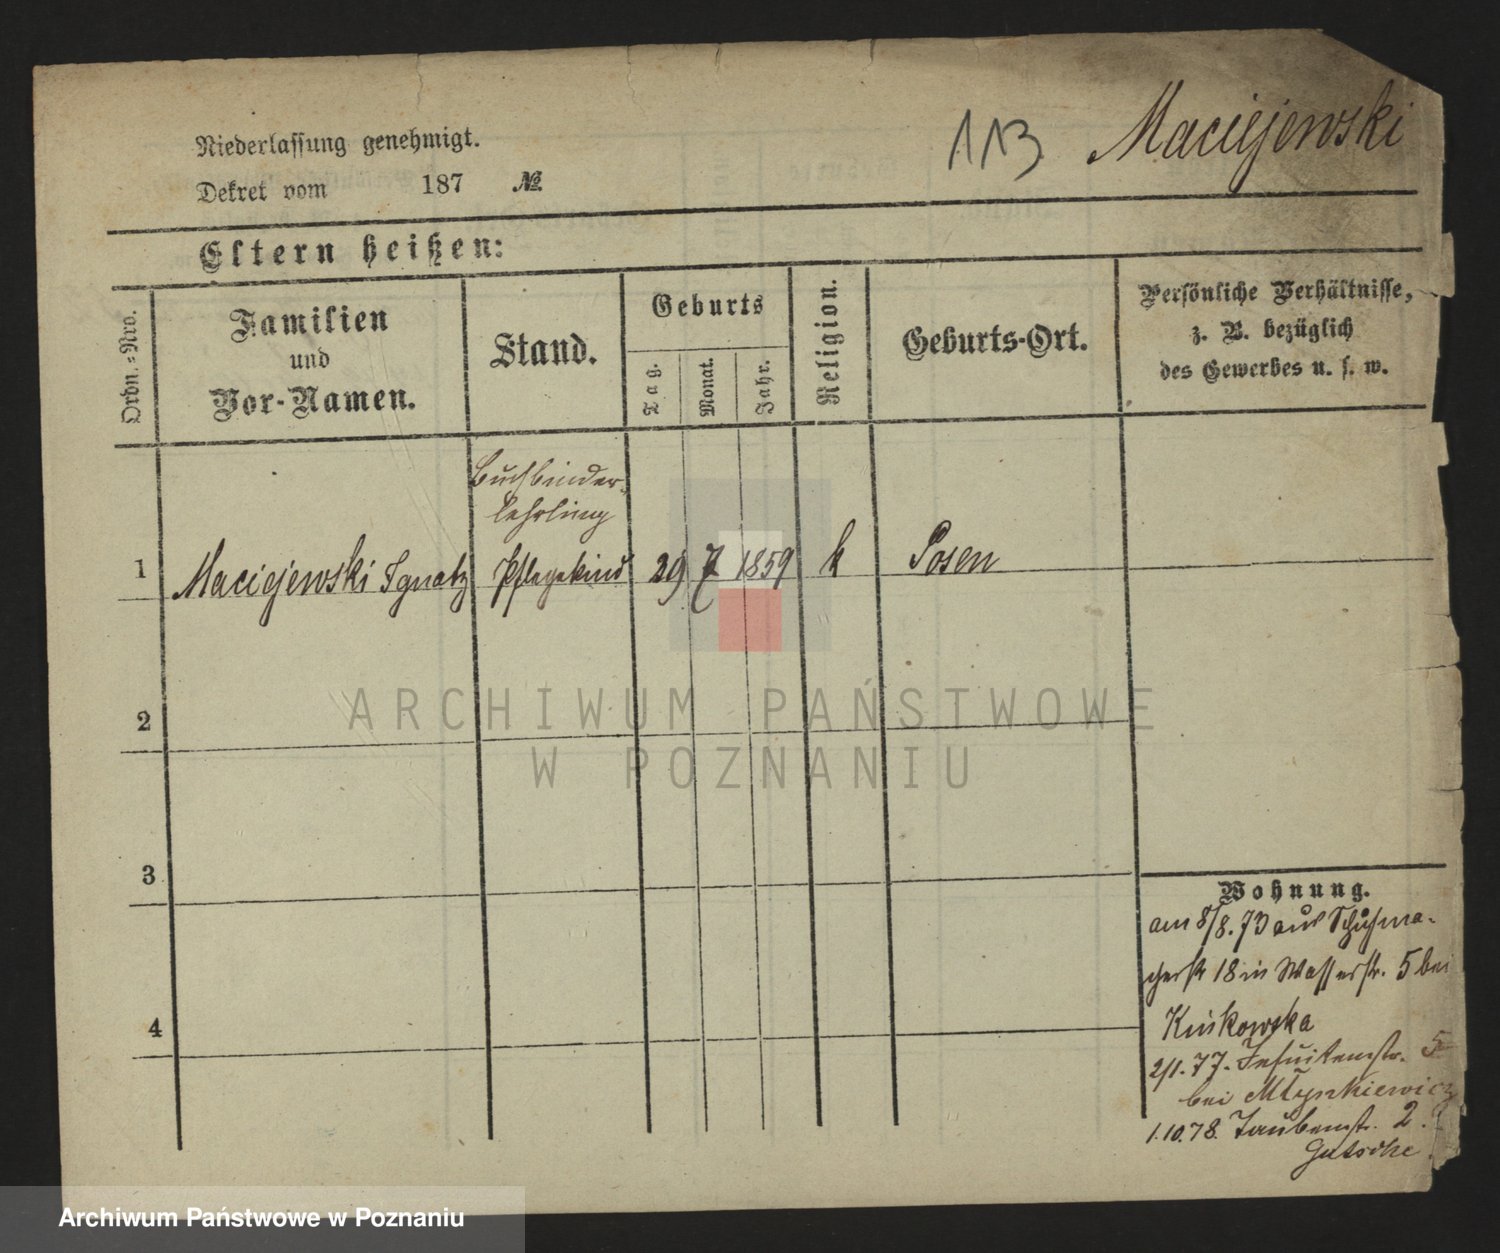 Niederlassung genehmigt.
Dekret vom 187 №
113 Maciejewski
Eltern heißen:
Ordn.-Nro.
Familien
und
Vor-Namen.
Stand.
Geburts
Tag.
Monat.
Jahr.
Religion.
Geburts-Ort.
Persönliche Verhältnisse,
z. B. bezüglich
des Gewerbes u. s. w.
Buchbinder-
lehrling
1 Maciejewski Ignatz Pflegekind 29 7 1859 k Posen
2
3
4
Wohnung.
am 8/8.73 aus Schuhma-
cherstr 18 in Wasserstr. 5 bei
Kuskowska
2/1.77. Jesuitenstr. 5
bei Młynkiewicz
1.10.78. Taubenstr. 2.
Gutsche
ARCHIWUM PAŃSTWOWE
W POZNANIU
Archiwum Państwowe w Poznaniu